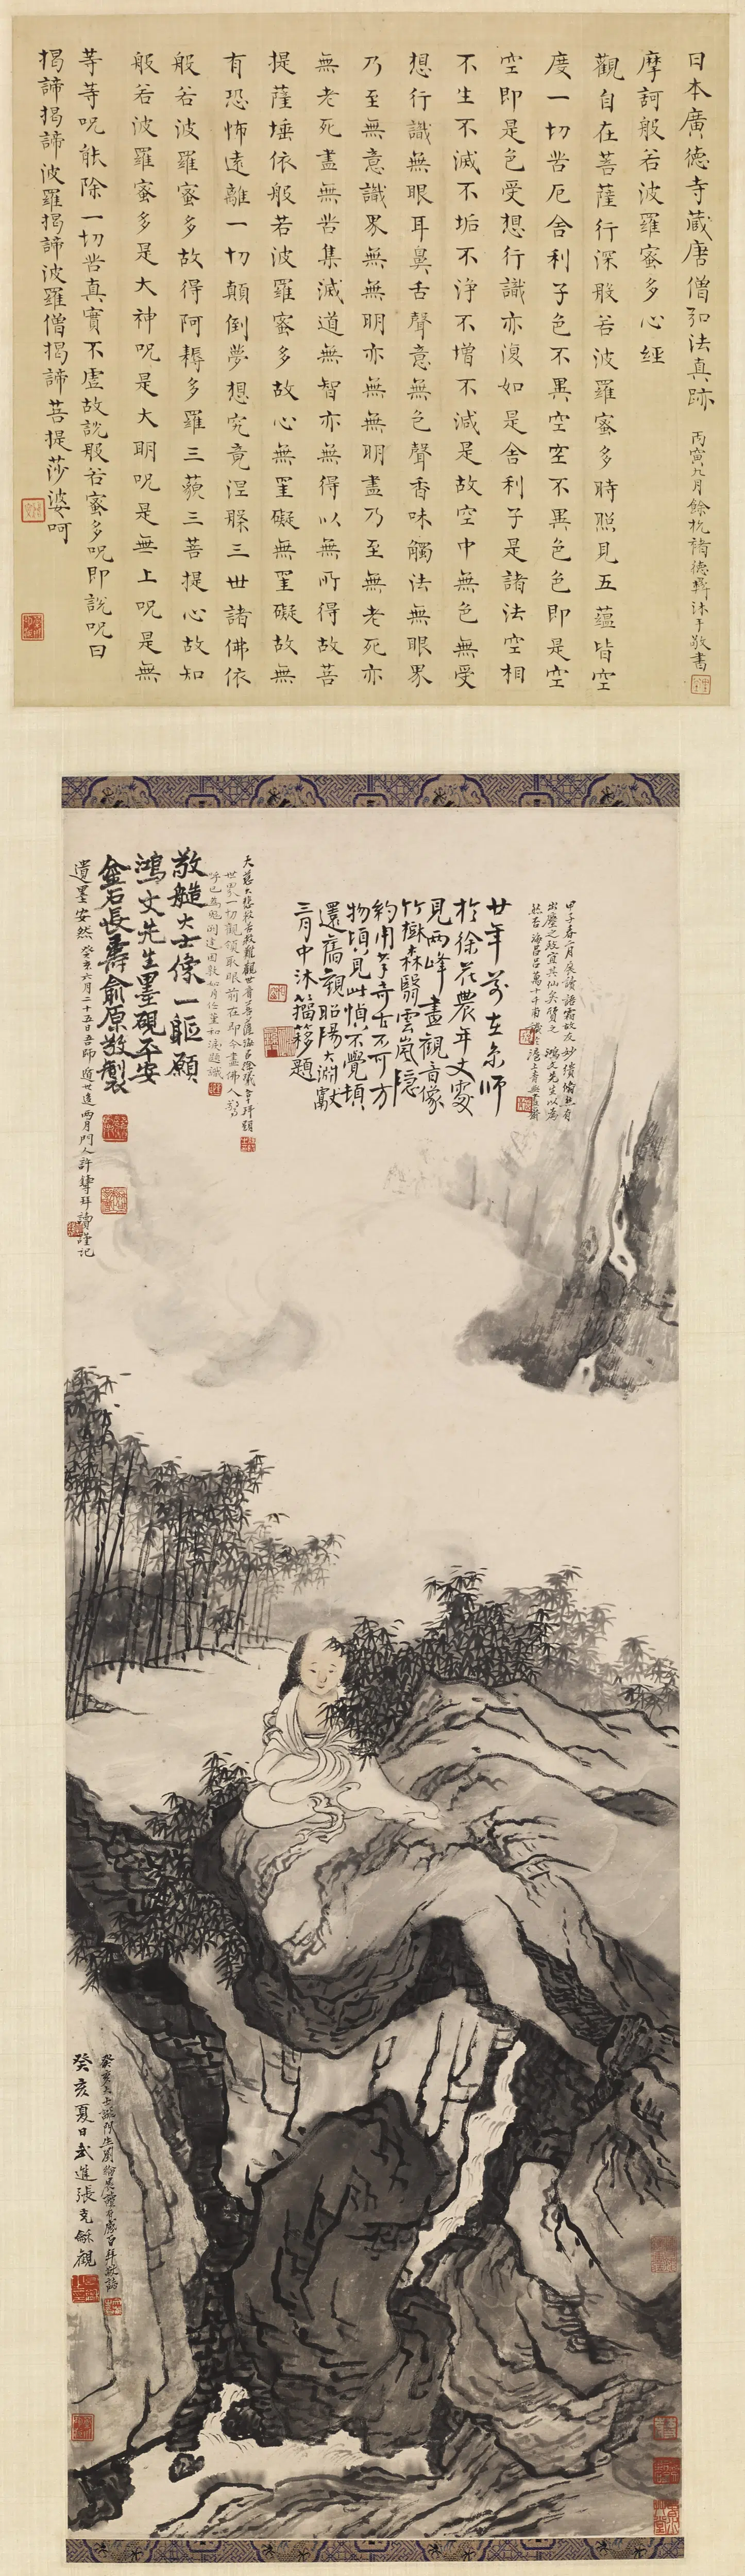 日本廣德寺藏唐僧弘法真跡
丙寅九月餘杭褚德彝沐手敬書
摩訶般若波羅蜜多心經
觀自在菩薩行深般若波羅蜜多時照見五蘊皆空
度一切苦厄舍利子色不異空空不異色色即是空
空即是色受想行識亦復如是舍利子是諸法空相
不生不滅不垢不淨不增不減是故空中無色無受
想行識無眼耳鼻舌聲意無色聲香味觸法無眼界
乃至無意識界無無明亦無無明盡乃至無老死亦
無老死盡無苦集滅道無智亦無得以無所得故菩
提薩埵依般若波羅蜜多故心無罣礙無罣礙故無
有恐怖遠離一切顛倒夢想究竟涅槃三世諸佛依
般若波羅蜜多故得阿耨多羅三藐三菩提心故知
般若波羅蜜多是大神呪是大明呪是無上呪是無
等等呪能除一切苦真實不虛故說般若蜜多呪即說呪曰
揭諦揭諦波羅揭諦波羅僧揭諦菩提莎婆呵
甲子春二月展讀語霜故友妙繢翛然有
出塵之致宜其仙矣質之鴻文先生以為
然否
廿年前在京師
於徐花農年丈處
見兩峰畫觀音像
竹樹森翳雲嵐隱
約用筆奇古不可方
物頃見此幀不覺頓
還舊觀昭陽大淵獻
三月中沐籀簃題
大慈大悲救苦救難觀世音菩薩
世界一切觀領取眼前在即今畫佛人
敬造大士像一軀願
鴻文先生墨硯平安
金石長壽俞原敬製
遺墨安然癸亥六月二十五日吾師逝世逾兩月門人許拜讀謹記
癸亥夏日武進張克龢觀